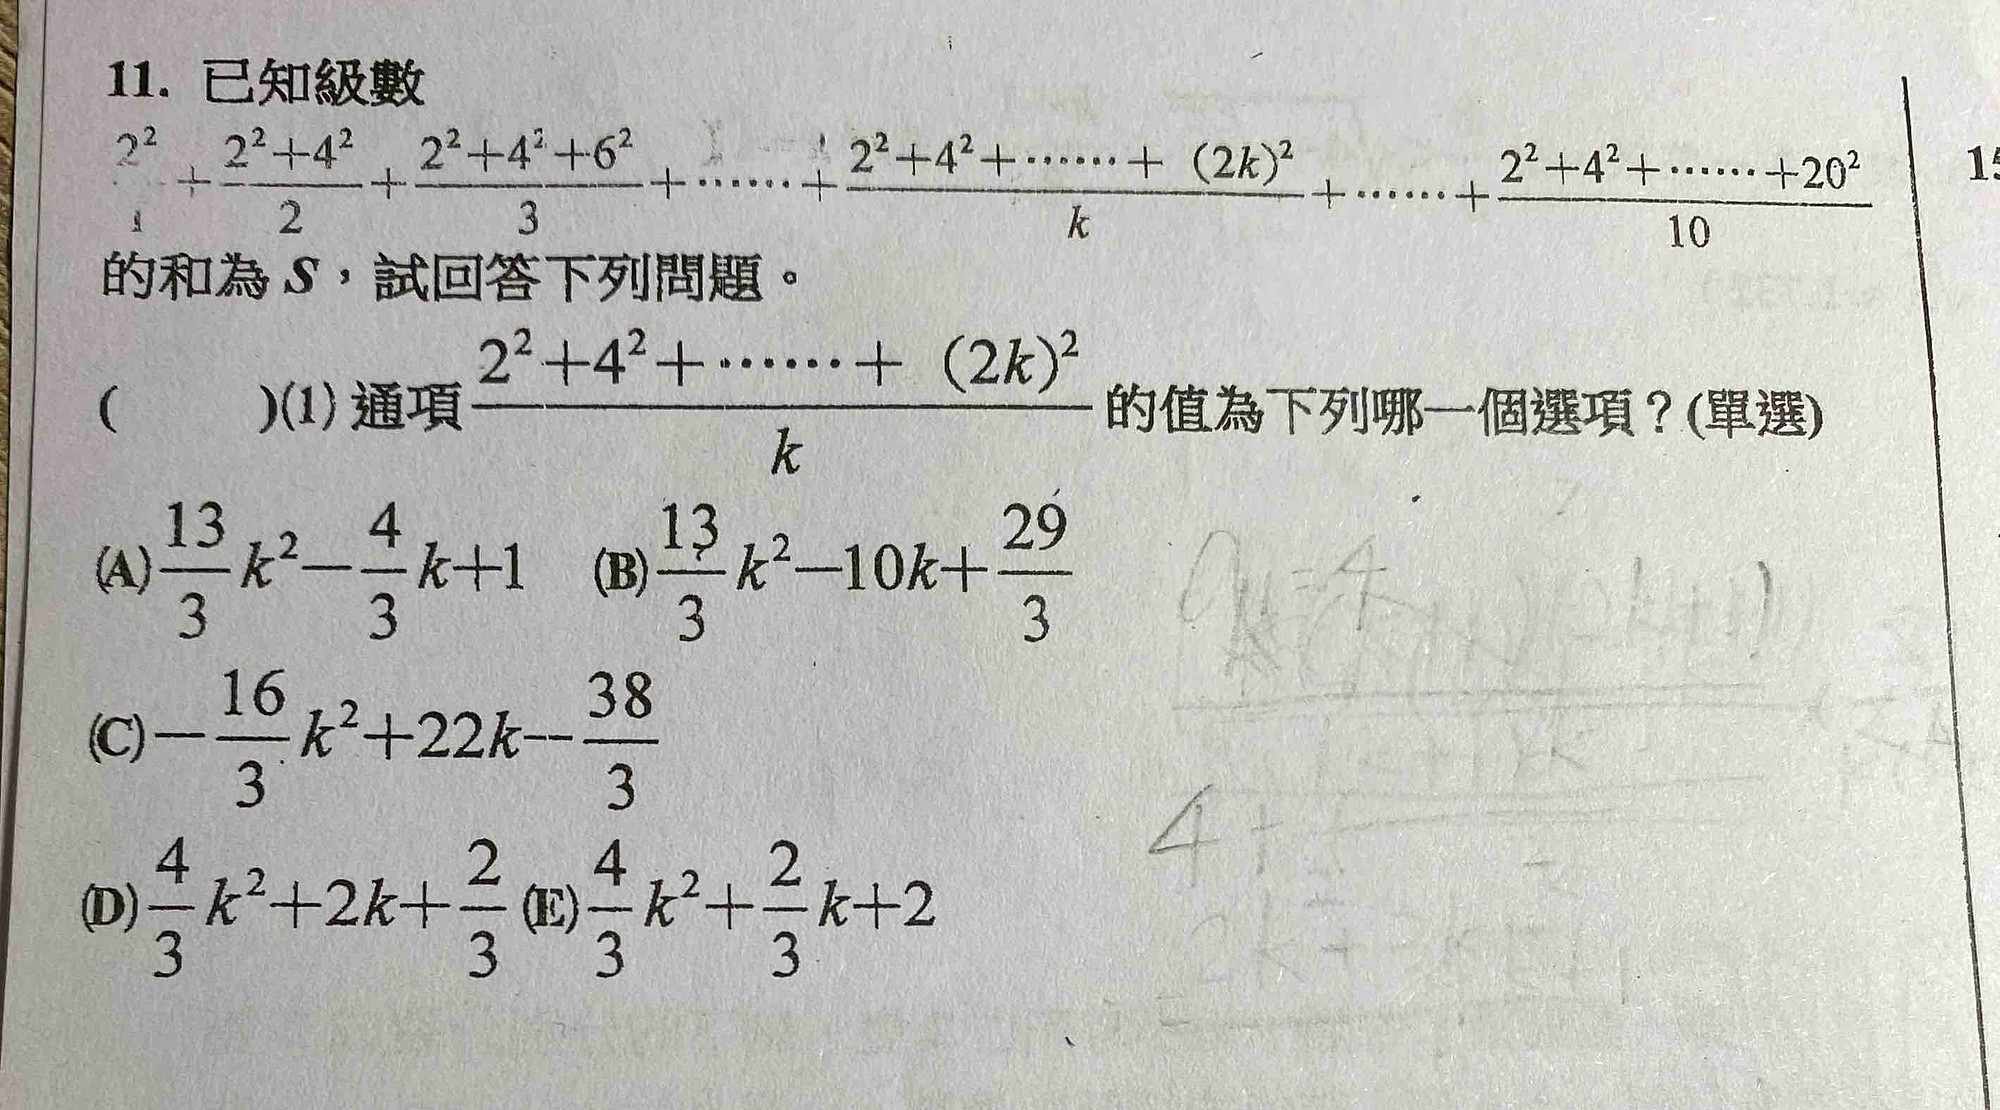 11. 已知級數
2²/1 + (2²+4²)/2 + (2²+4²+6²)/3 + …… + (2²+4²+……+(2k)²)/k + …… + (2²+4²+……+20²)/10
的和為 S，試回答下列問題。
( )(1) 通項 (2²+4²+……+(2k)²)/k 的值為下列哪一個選項？(單選)
(A) 13/3 k²－4/3 k+1 (B) 13/3 k²－10k+29/3
(C) －16/3 k²+22k－38/3
(D) 4/3 k²+2k+2/3 (E) 4/3 k²+2/3 k+2